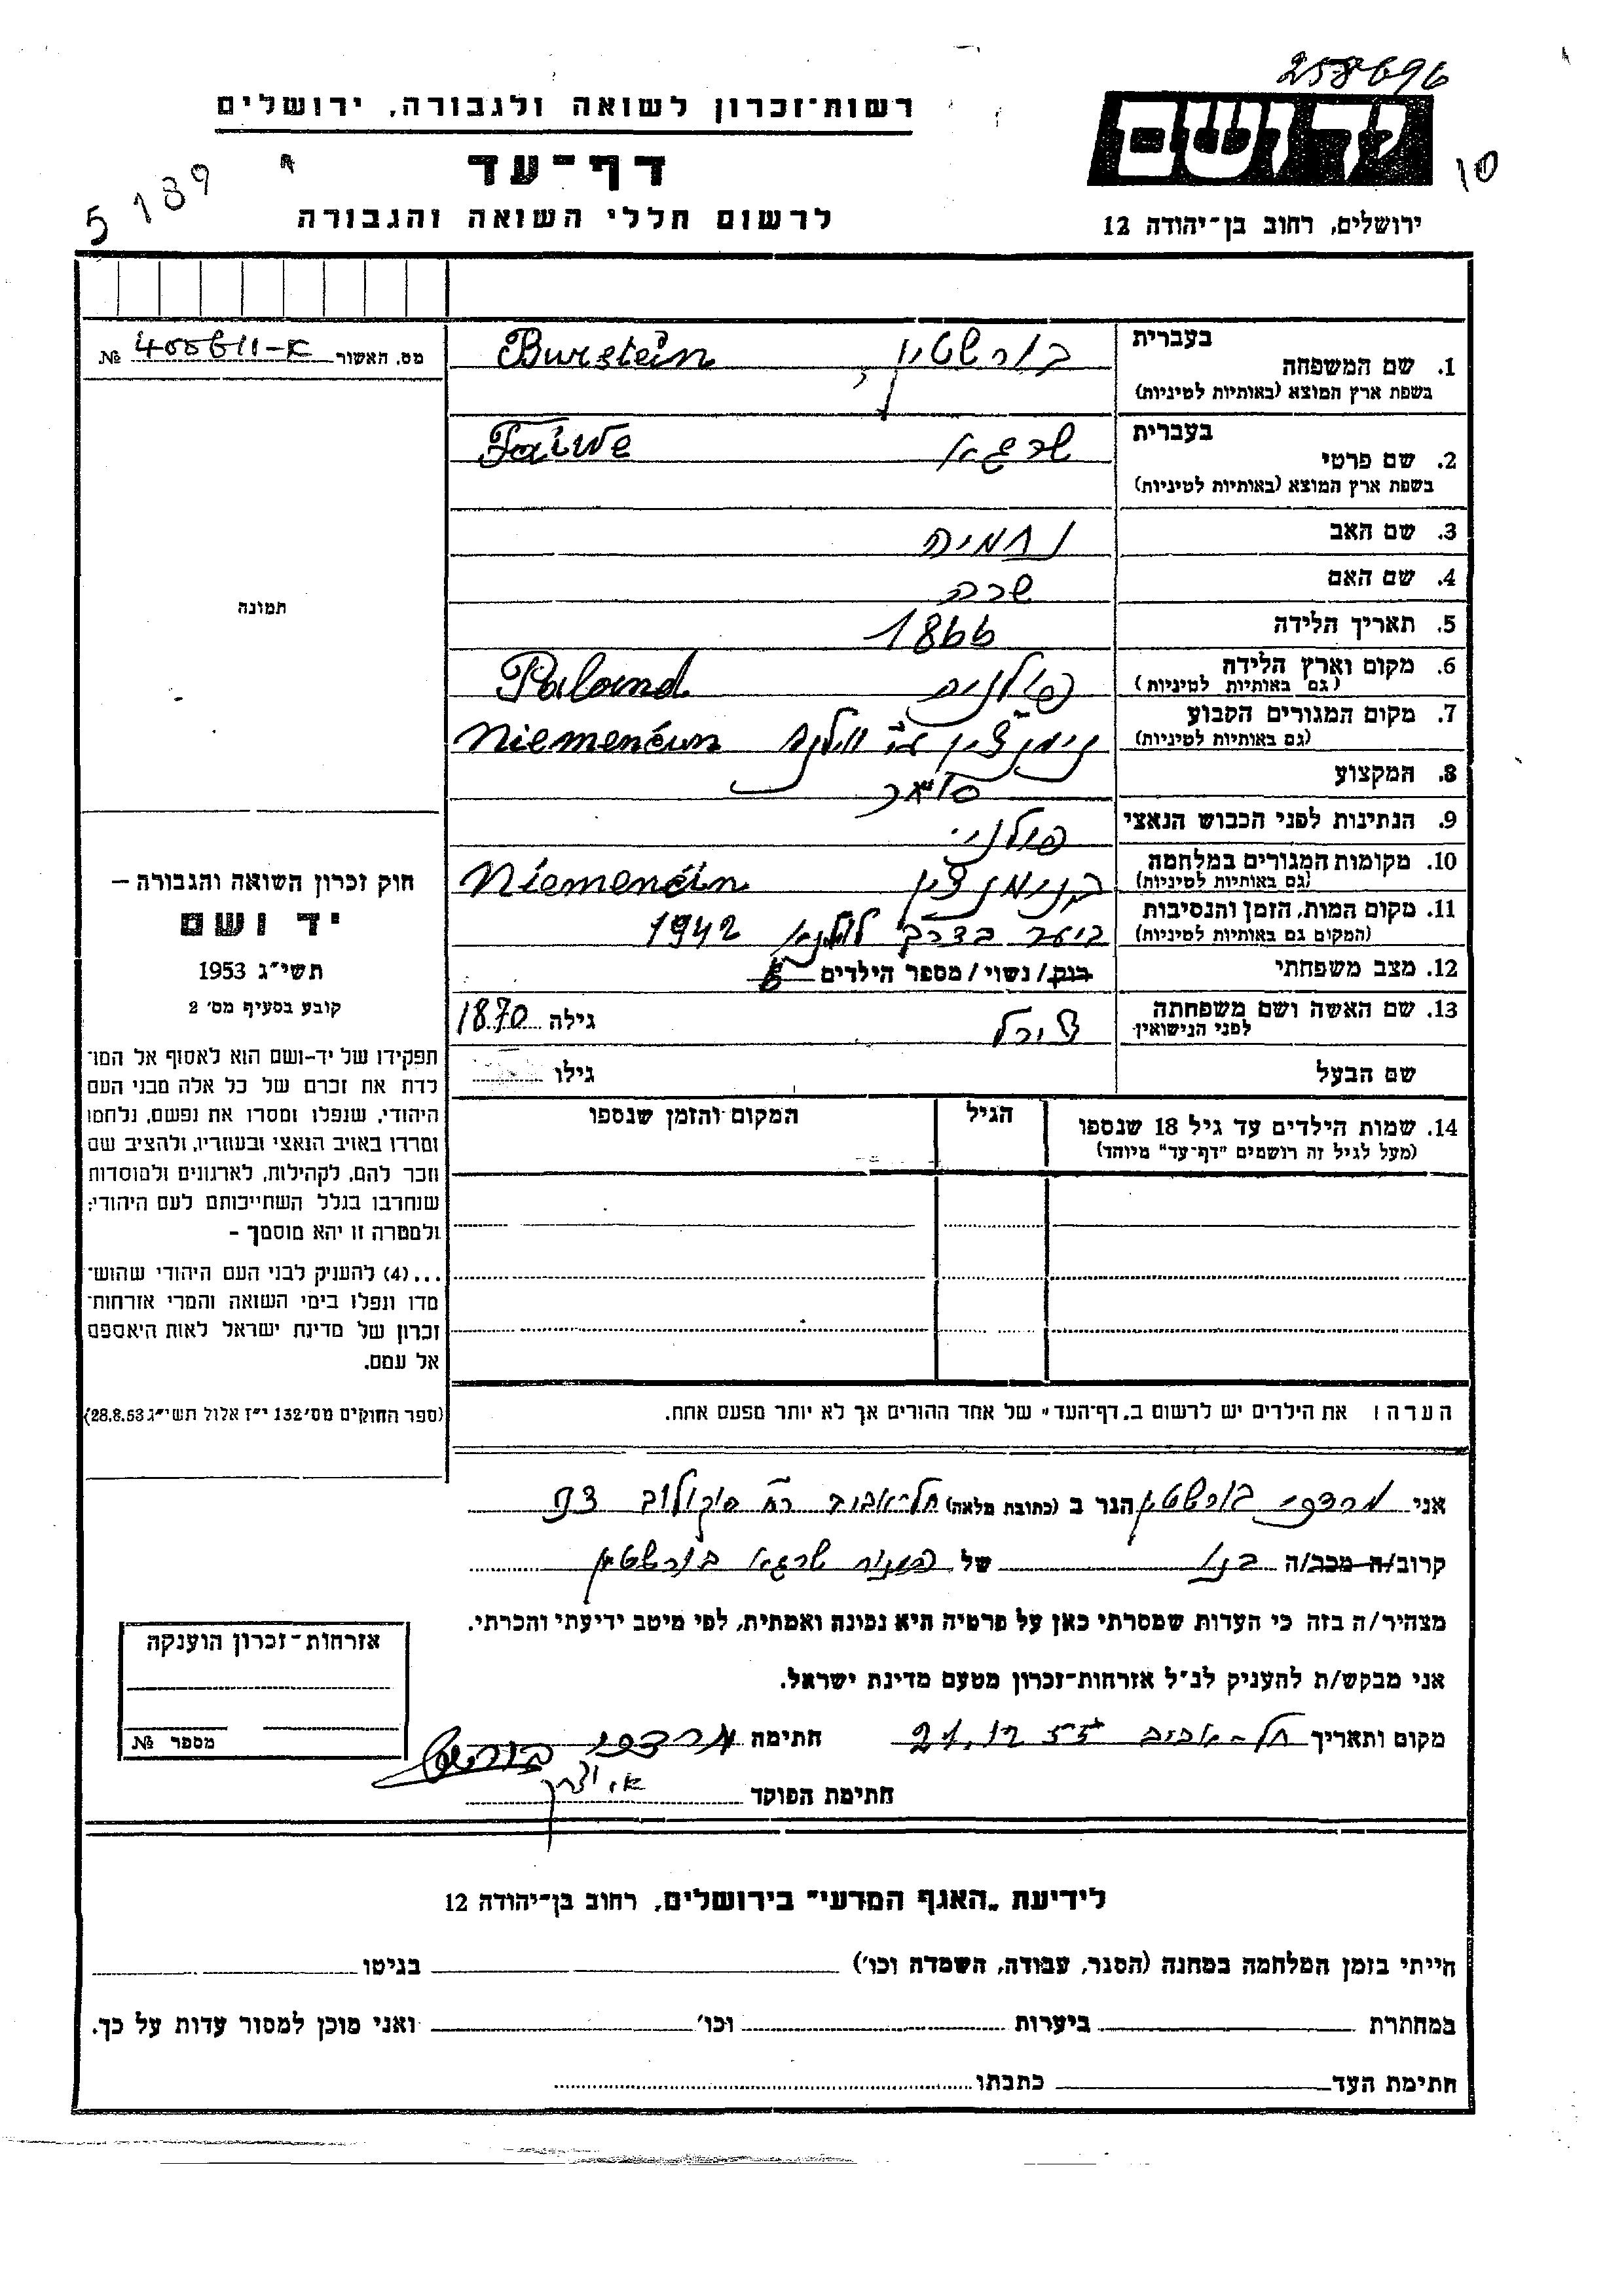 258696
רשות-זכרון לשואה ולגבורה, ירושלים
יד ושם
10
דף-עד
5189
לרשום חללי השואה והגבורה
ירושלים, רחוב בן-יהודה 12
מס. האשור № 405611-א
בעברית
1. שם המשפחה בורשטין Burstein
בשפת ארץ המוצא (באותיות לטיניות)
בעברית
2. שם פרטי שרגא Faiwe
בשפת ארץ המוצא (באותיות לטיניות)
3. שם האב נחמיה
4. שם האם שרה
5. תאריך הלידה 1866
6. מקום וארץ הלידה פולניה Poland
(גם באותיות לטיניות)
7. מקום המגורים הקבוע נימנצין ע"י וילנה Niemenčun
(גם באותיות לטיניות)
8. המקצוע סוחר
9. הנתינות לפני הכבוש הנאצי פולני
10. מקומות המגורים במלחמה בנימנצין Niemenčin
(גם באותיות לטיניות)
11. מקום המות, הזמן והנסיבות ביער בדרך לוילנא 1942
(המקום גם באותיות לטיניות)
12. מצב משפחתי רווק/נשוי/מספר הילדים 6
13. שם האשה ושם משפחתה לפני הנישואין צירל גילה 1870
שם הבעל גילו
תמונה
חוק זכרון השואה והגבורה –
יד ושם
תשי"ג 1953
קובע בסעיף מס' 2
תפקידו של יד-ושם הוא לאסוף אל המו-
לדת את זכרם של כל אלה מבני העם
היהודי, שנפלו ומסרו את נפשם, נלחמו
ומרדו באויב הנאצי ובעוזריו, ולהציב שם
וזכר להם, לקהילות, לארגונים ולמוסדות
שנחרבו בגלל השתייכותם לעם היהודי;
ולמטרה זו יהא מוסמך –
...(4) להעניק לבני העם היהודי שהוש-
מדו ונפלו בימי השואה והמרי אזרחות-
זכרון של מדינת ישראל לאות היאספם
אל עמם.
(ספר החוקים מס' 132 י"ז אלול תשי"ג 28.8.53)
14. שמות הילדים עד גיל 18 שנספו הגיל המקום והזמן שנספו
(מעל לגיל זה רושמים "דף-עד" מיוחד)
הערה: את הילדים יש לרשום ב„דף-העד" של אחד ההורים אך לא יותר מפעם אחת.
אני מרדכי בורשטין הגר ב (כתובת מלאה) תל-אביב רח' סוקולוב
קרוב/ה מכר/ה בנו של המנוח שרגא בורשטין
מצהיר/ה בזה כי העדות שמסרתי כאן על פרטיה היא נכונה ואמתית, לפי מיטב ידיעתי והכרתי.
אני מבקש/ת להעניק לנ"ל אזרחות-זכרון מטעם מדינת ישראל.
מקום ותאריך תל-אביב 21.12.55 חתימה מרדכי בורשטין
חתימת הפוקד
אזרחות-זכרון הוענקה
מספר №
לידיעת „האגף המדעי" בירושלים, רחוב בן-יהודה 12
הייתי בזמן המלחמה במחנה (הסגר, עבודה, השמדה וכו') בגיטו
במחתרת ביערות וכו' ואני מוכן למסור עדות על כך.
חתימת העד כתבתו